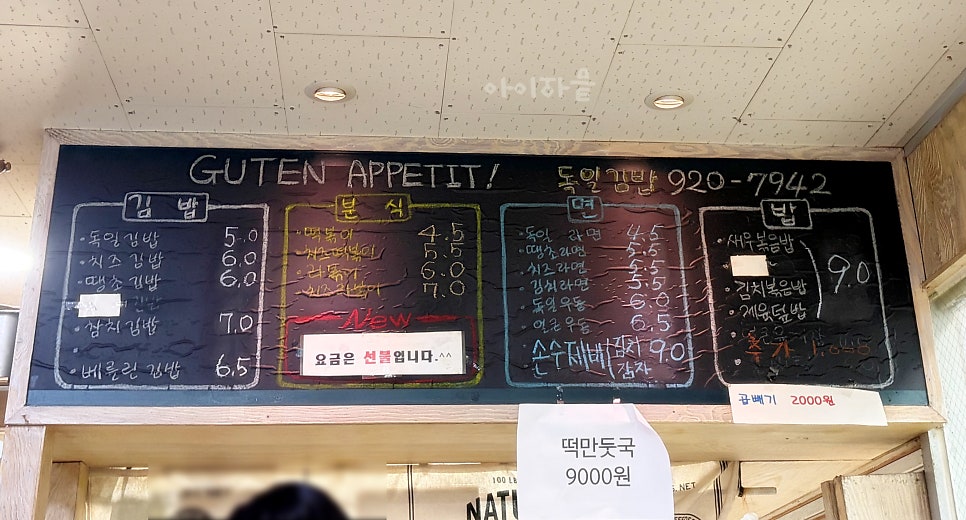 아이자믈
GUTEN APPETIT! 독일김밥 920-7942
김 밥
·독일김밥 5.0
·치즈김밥 6.0
·땡초김밥 6.0
김밥
·참치김밥 7.0
·베를린 김밥 6.5
분 식
·떡볶이 4.5
·치즈떡볶이 5.5
·라볶이 6.0
·치즈라볶이 7.0
New
요금은 선불입니다.^^
면
·독일 라면 4.5
·땡초라면 5.5
·치즈라면 5.5
·김치라면 5.5
·독일우동 6.0
·우동 6.5
·손수제비 김치 감자 9.0
밥
·새우볶음밥
·김치볶음밥
·제육덮밥
9.0
추가
곱빼기 2000원
떡만둣국
9000원
100 LB
. NET
NATU